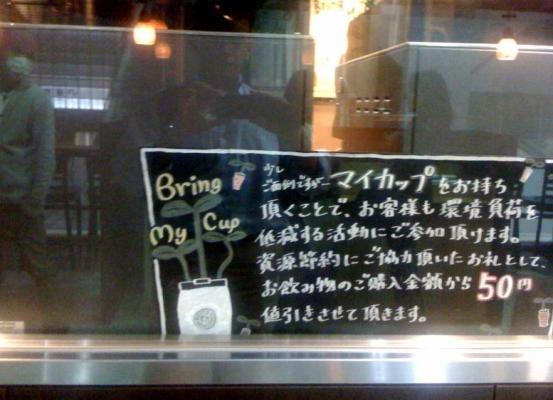 Bring
My Cup
少し
ご面倒ですが…マイカップをお持ち
頂くことで、お客様も環境負荷を
低減する活動にご参加頂けます。
資源節約にご協力頂いたお礼として、
お飲み物のご購入金額から50円
値引きさせて頂きます。